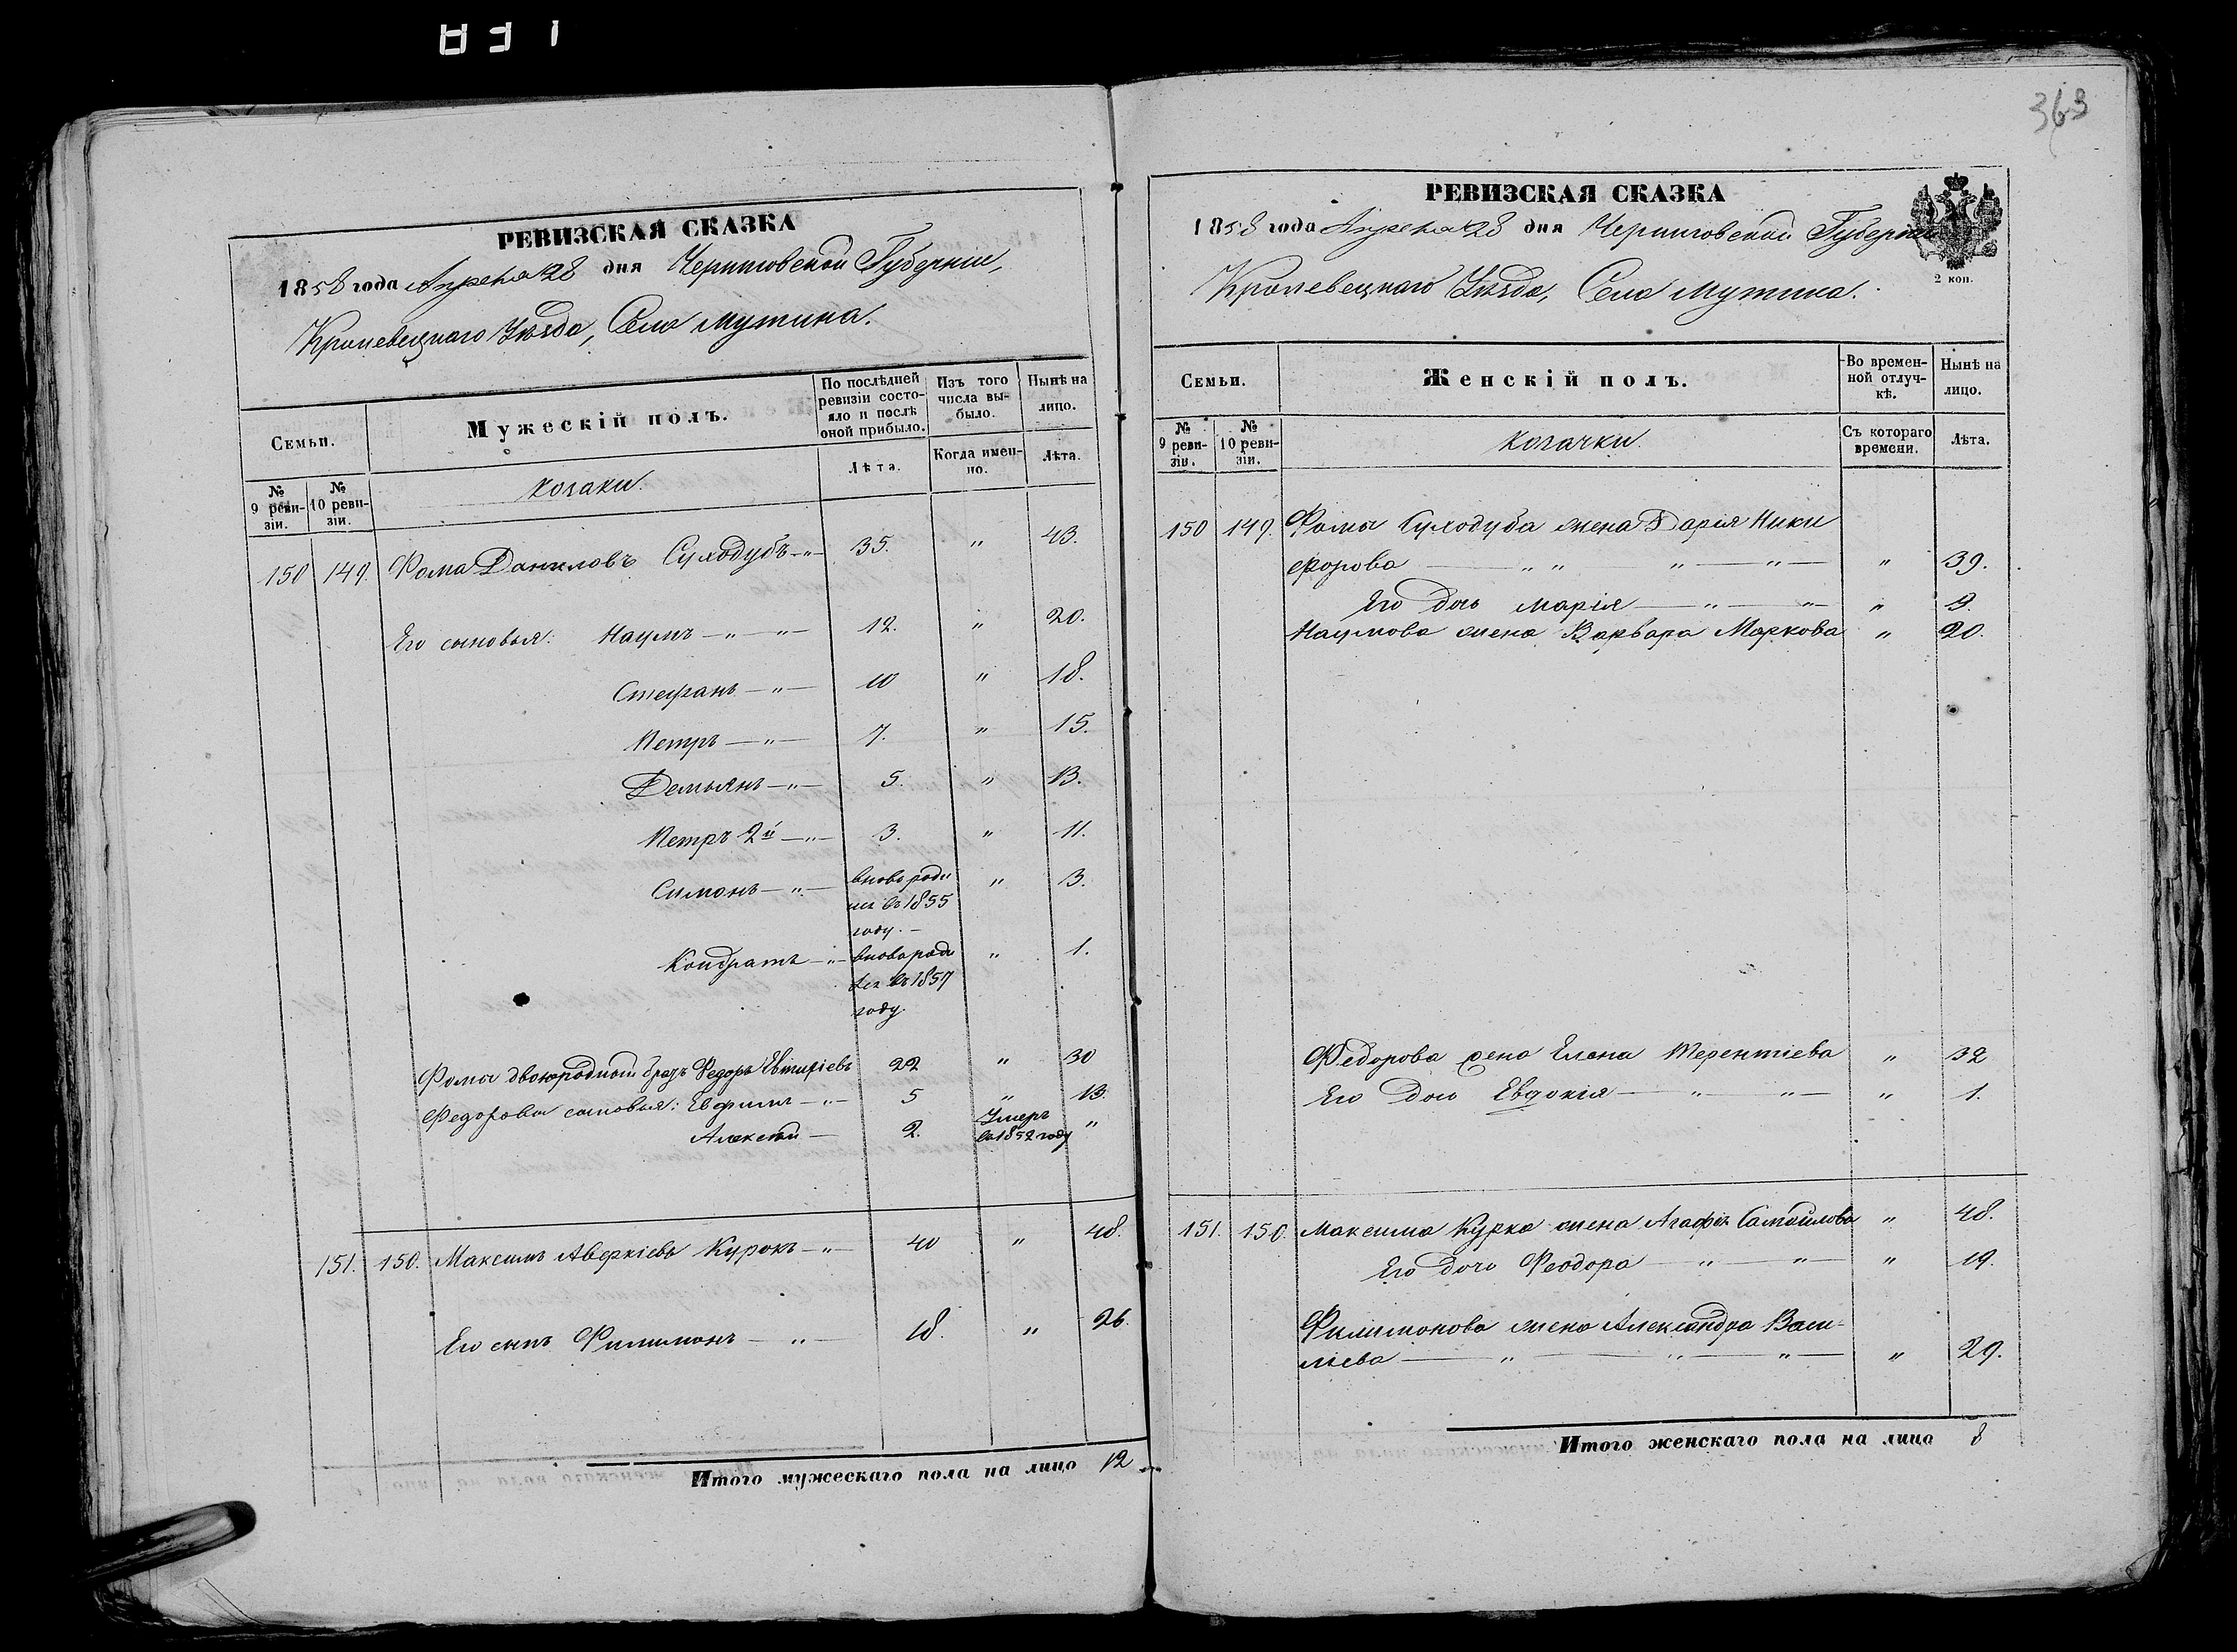 РЕВИЗСКАЯ СКАЗКА
1858 года Апреля 28 дня Черниговской Губерніи,
Кролевецкаго Уѣзда, Села Мутина.
Семьи.
Мужескій полъ.
По послѣдней ревизіи состояло и послѣ оной прибыло.
Изъ того числа выбыло.
Нынѣ на лицо.
№ 9 ревизіи.
№ 10 ревизіи.
козаки.
Лѣта.
Когда именно.
Лѣта.
150 149. Фома Даниловъ Суходубъ —"— 35. " 43.
Его сыновья: Наумъ —"—"— 12. " 20.
Стефанъ —"— 10 " 18.
Петръ —"— 7. " 15.
Демьянъ —"— 5. " 13.
Петръ 2й —"— 3. " 11.
Симонъ —"— вновь роди " 3.
лся въ 1855
году. —
Кондратъ —"— вновь роди " 1.
лся въ 1857
году.
Фомы двоюродный братъ Федоръ Евтихіевъ 22 " 30
Федоровы сыновья: Евфимъ —"— 5 " 13.
Алексѣй — 2. Умеръ въ 1852 году "
151. 150. Максимъ Аверкіевъ Курокъ —"— 40 " 48.
Его сынъ Филимонъ — " — 18. " 26.
Итого мужескаго пола на лицо 12
363
РЕВИЗСКАЯ СКАЗКА
1858 года Апреля 28 дня Черниговской Губерніи
2 коп.
Кролевецкаго Уѣзда, Села Мутина.
Семьи.
Женскій полъ.
Во временной отлучкѣ.
Нынѣ на лицо.
№ 9 ревизіи.
№ 10 ревизіи.
козачки.
Съ котораго времени.
Лѣта.
150 149. Фомы Суходуба жена Дарія Ники
форова — " " " — " — " 39.
Его дочь Марія — " — " — " 9.
Наумова жена Варвара Маркова " 20.
Федорова жена Елена Терентіева " 32
Его дочь Евдокія — " — " — " 1.
151. 150. Максима Курка жена Агафія Самойлова " 48.
Его дочь Феодора — " — " — " 19.
Филимонова жена Александра Васи-
льева — " — " — " — " 29.
Итого женскаго пола на лицо 8